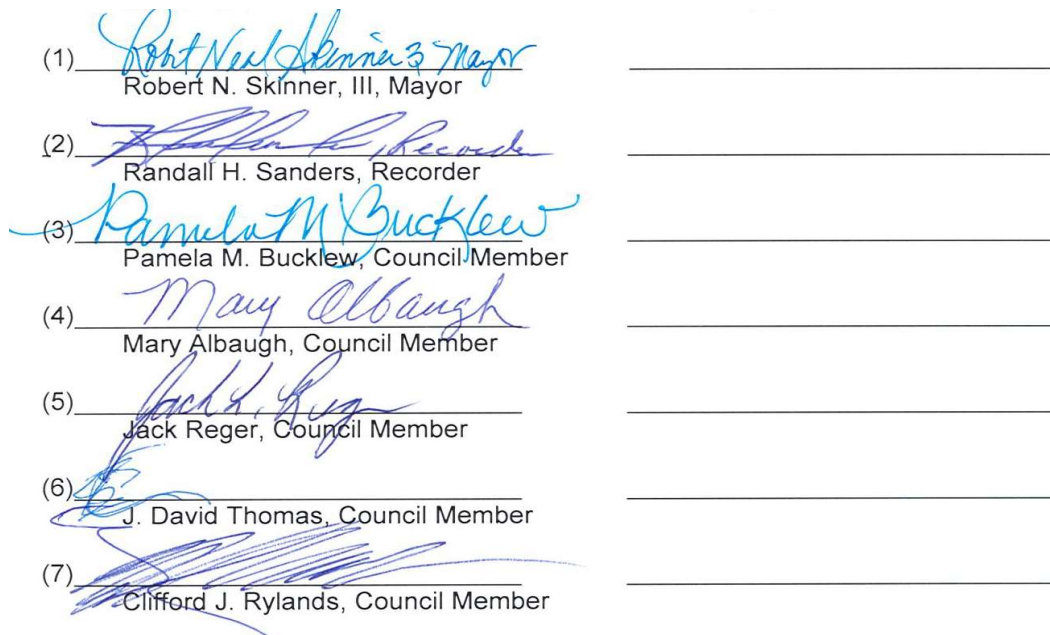 (1) Robt Neal Skinner 3 Mayor
Robert N. Skinner, III, Mayor
(2) , Recorder
Randall H. Sanders, Recorder
(3) Pamela M Bucklew
Pamela M. Bucklew, Council Member
(4) Mary Albaugh
Mary Albaugh, Council Member
(5) Jack L. Reger
Jack Reger, Council Member
(6)
J. David Thomas, Council Member
(7)
Clifford J. Rylands, Council Member